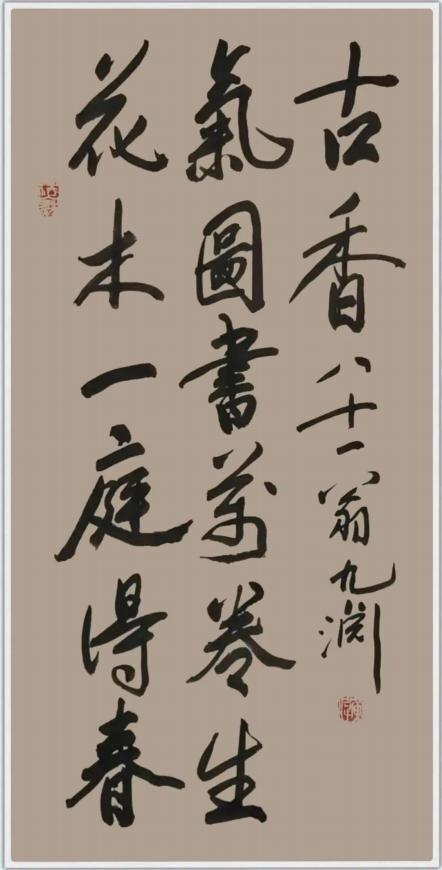 花木一庭得春
氣圖書萬卷生
古香八十一翁九淵